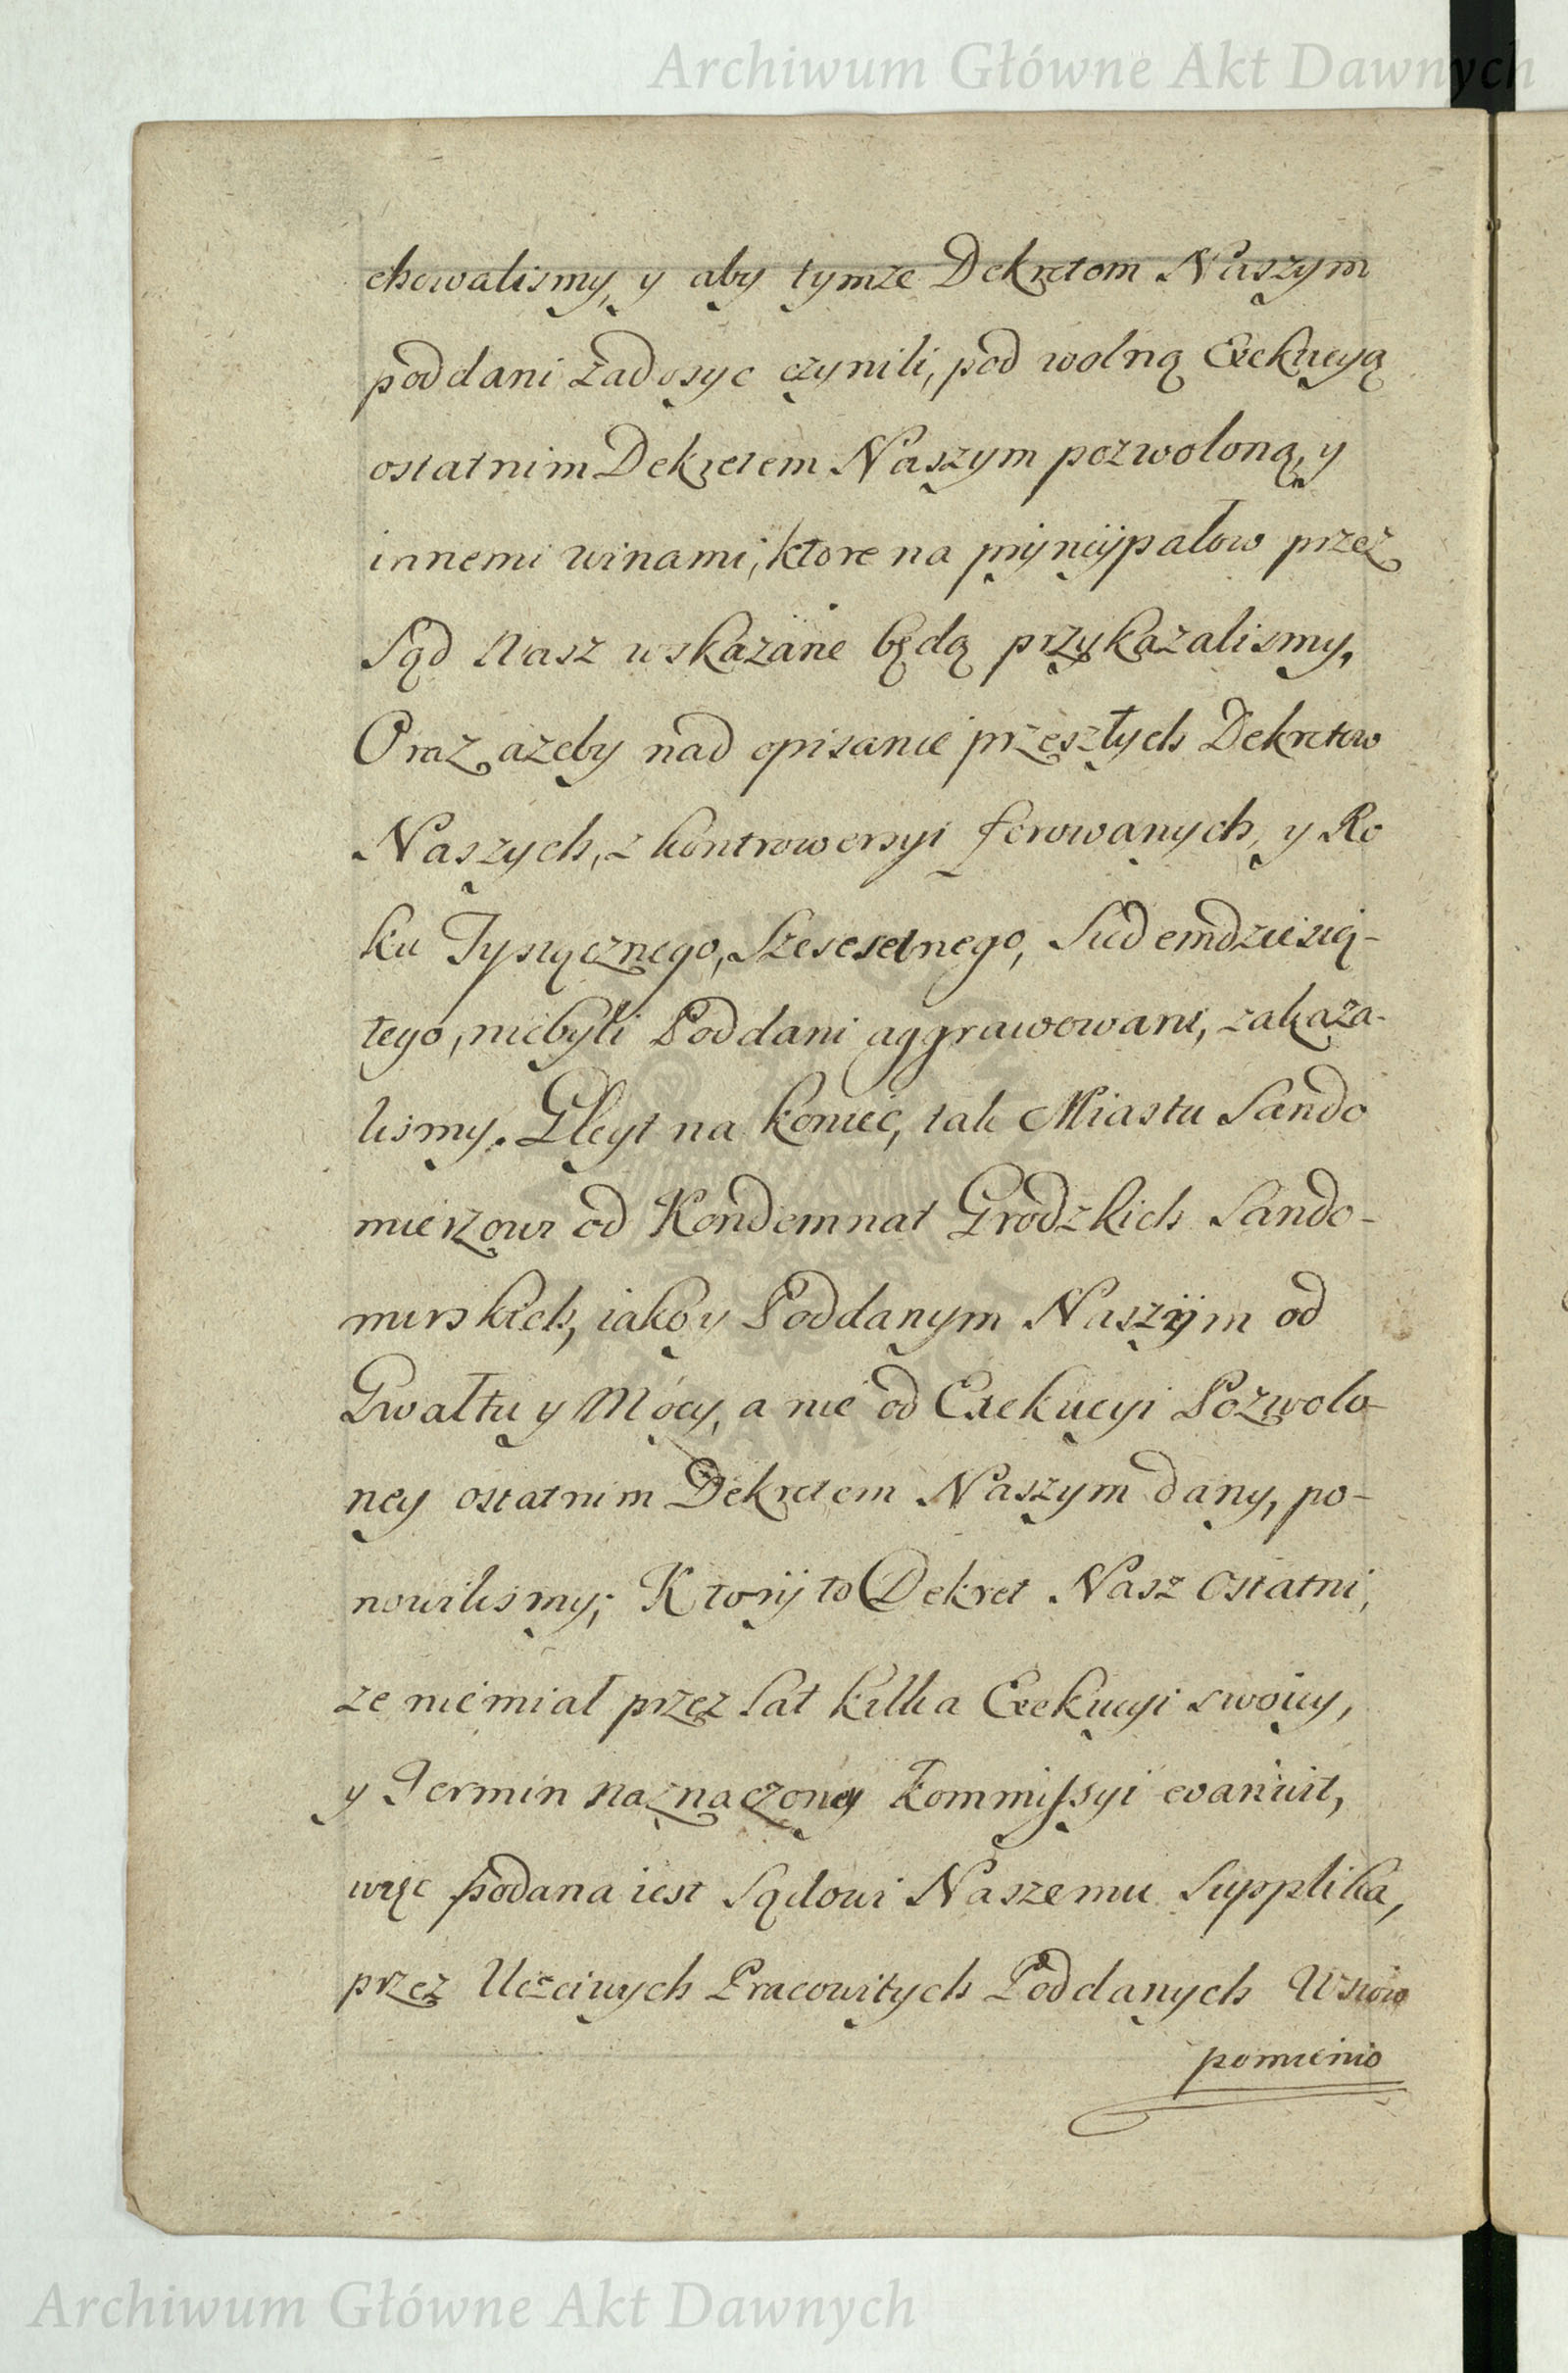 Archiwum Główne Akt Dawnych
chowalismy, y aby tymze Dekretom Naszym
poddani zadosyc czynili, pod wolną Exekucyą
ostatnim Dekretem Naszym pozwoloną, y
innemi winami, ktore na pryncypałow przez
Sąd Nasz wskazane będą przykazalismy,
Oraz azeby nad opisanie przeszłych Dekretow
Naszych, z kontrowersyi ferowanych, y Ro
ku Tysiącznego, Szescsetnego, Siedemdziesią-
tego, niebyli Poddani aggrawowani, zakaza-
lismy. Gleyt na koniec, tak Miastu Sando
mierzowi od Kondemnat Grodzkich Sando-
mirskich, iako y Poddanym Naszym od
Gwałtu y Mocy, a nie od Exekucyi Pozwolo-
ney ostatnim Dekretem Naszym dany, po-
nowilismy; Ktory to Dekret Nasz ostatni,
ze niemiał przez Lat kilka Exekucyi swoiey,
y Termin naznaczoney Kommissyi evanuit,
więc podana iest Sądowi Naszemu Supplika,
przez Uczciwych Pracowitych Poddanych Wsiow
pomienio
Archiwum Główne Akt Dawnych